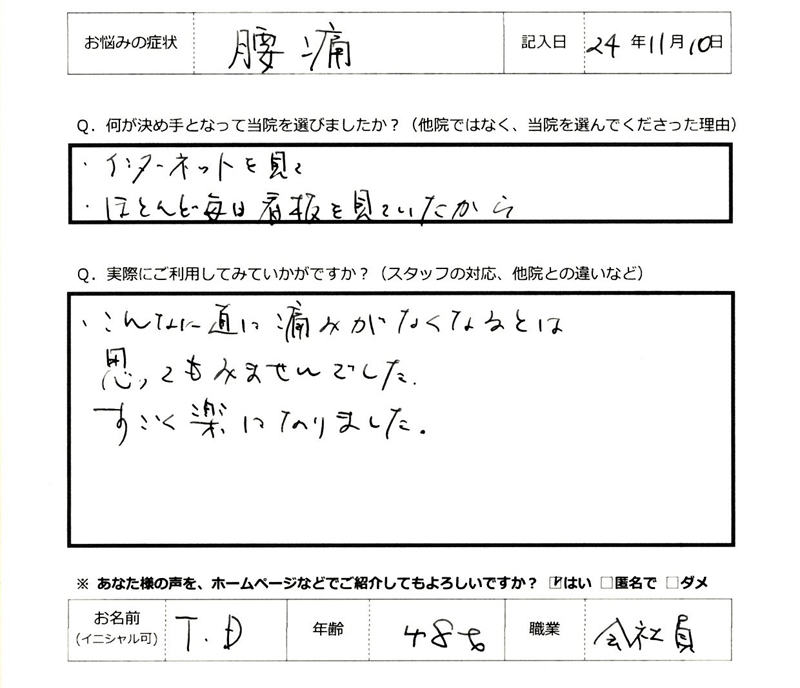 お悩みの症状 腰痛 記入日 24年11月10日
Q．何が決め手となって当院を選びましたか？（他院ではなく、当院を選んでくださった理由）
・インターネットを見て
・ほとんど毎日看板を見ていたから
Q．実際にご利用してみていかがですか？（スタッフの対応、他院との違いなど）
・こんなに直に痛みがなくなるとは
思ってもみませんでした.
すごく楽になりました。
※ あなた様の声を、ホームページなどでご紹介してもよろしいですか？ ☑はい □匿名で □ダメ
お名前 T.D 年齢 48才 職業 会社員
(イニシャル可)